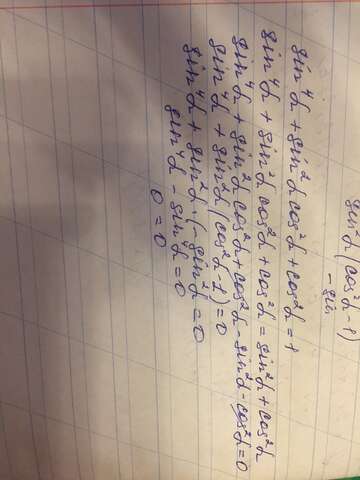 sin²α(cos²α-1)
-sin
sin⁴α + sin²α cos²α + cos²α = 1
sin⁴α + sin²α cos²α + cos²α = sin²α + cos²α
sin⁴α + sin²α cos²α + cos²α - sin²α - cos²α = 0
sin⁴α + sin²α(cos²α-1) = 0
sin⁴α + sin²α·(-sin²α) = 0
sin⁴α - sin⁴α = 0
0 = 0